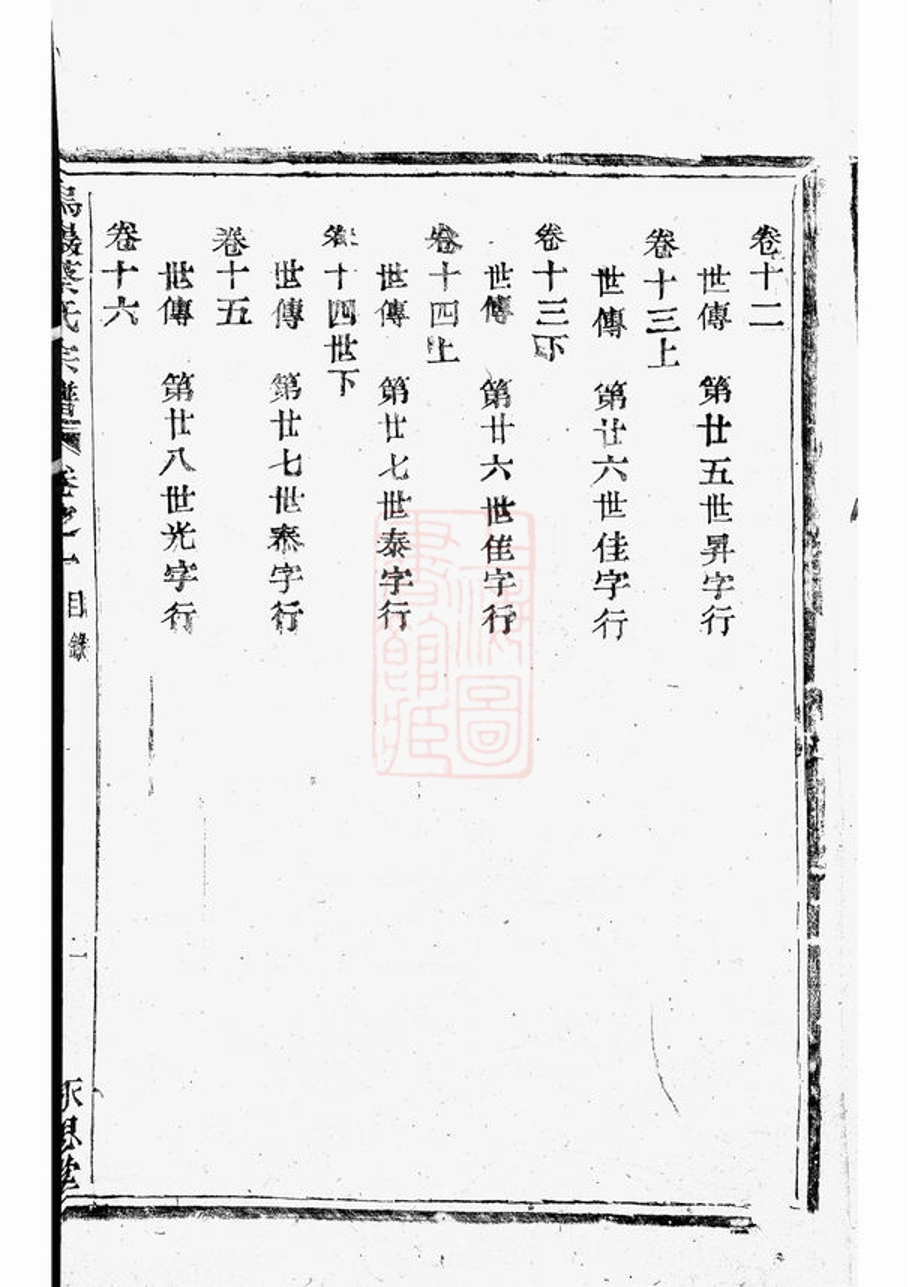 卷十二
世傳 第廿五世昇字行
卷十三上
世傳 第廿六世佳字行
卷十三下
世傳 第廿六世佳字行
卷十四上
世傳 第廿七世泰字行
卷十四世下
世傳 第廿七世泰字行
卷十五
世傳 第廿八世光字行
卷十六
蔡氏宗譜 卷之一 目錄 二 思堂
上海圖書館藏